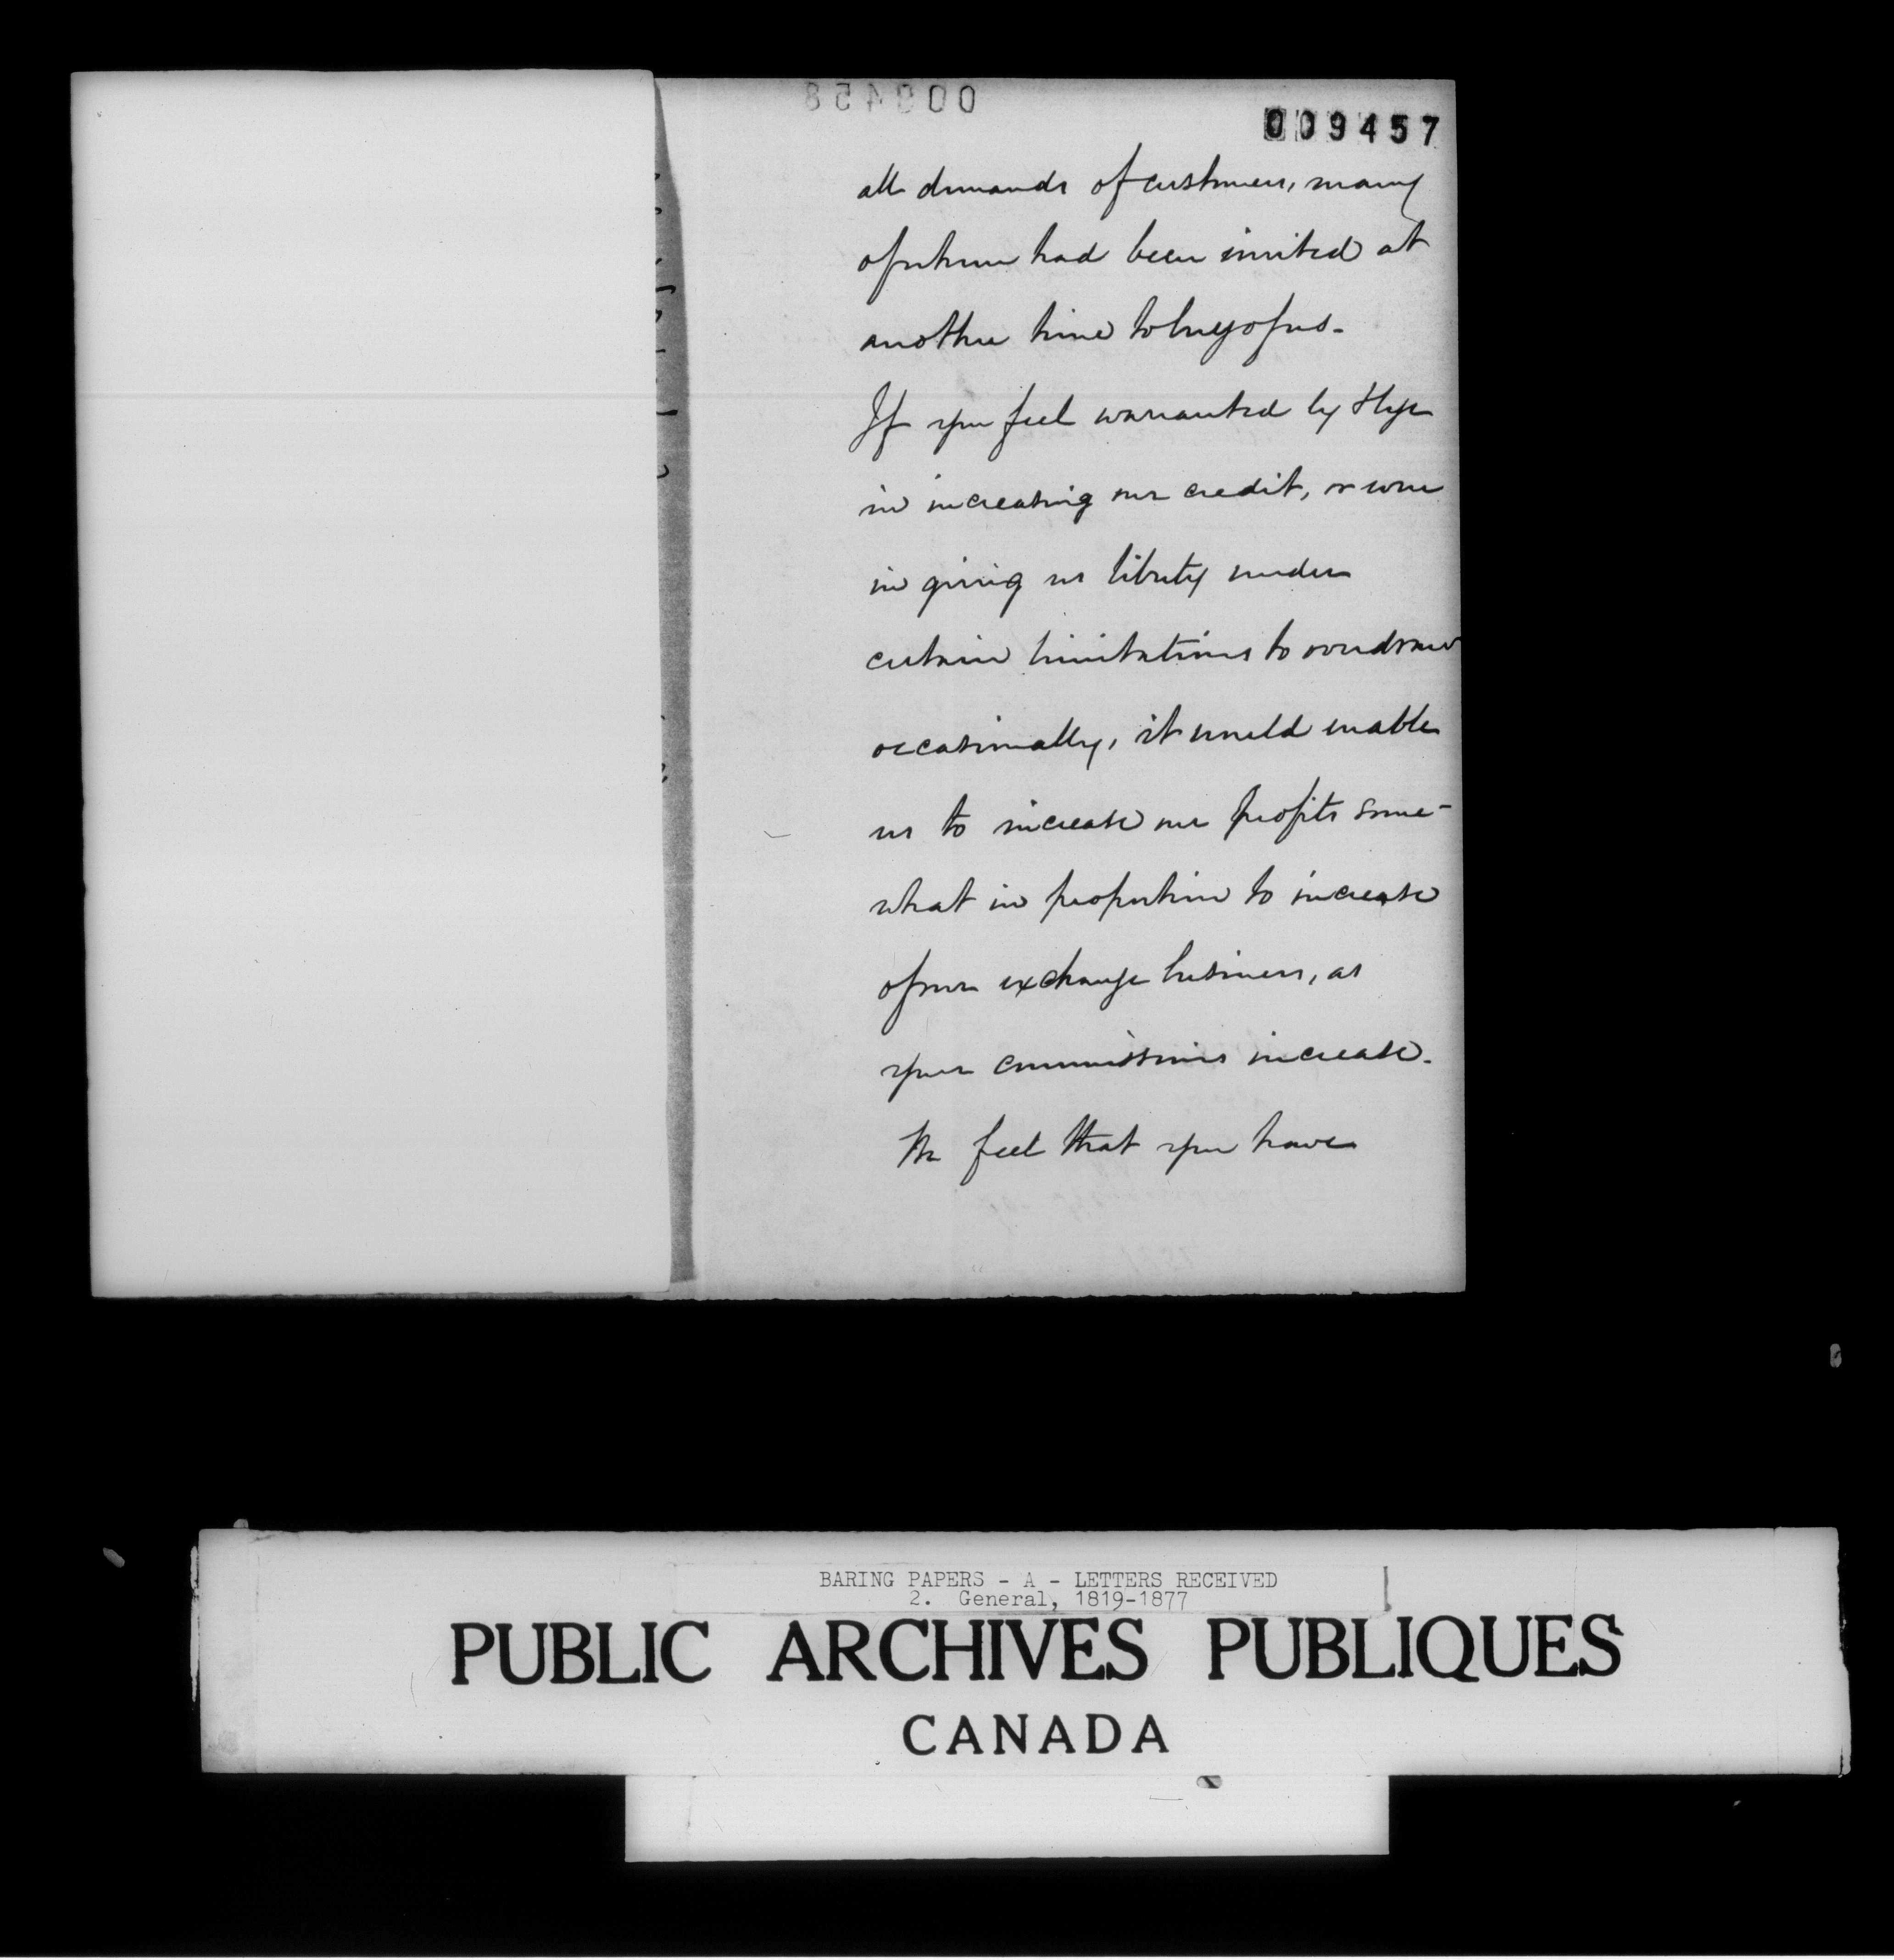 009458
009457
all demands of customers, many
of whom had been invited at
another time to buy of us.
If you feel warranted by
in increasing our credit, or even
in giving us liberty under
certain limitations to overdraw
occasionally, it would enable
us to increase our profits some-
what in proportion to increase
of our exchange business, as
your commissions increase.
We feel that you have
BARING PAPERS - A - LETTERS RECEIVED
2. General, 1819-1877
PUBLIC ARCHIVES PUBLIQUES
CANADA